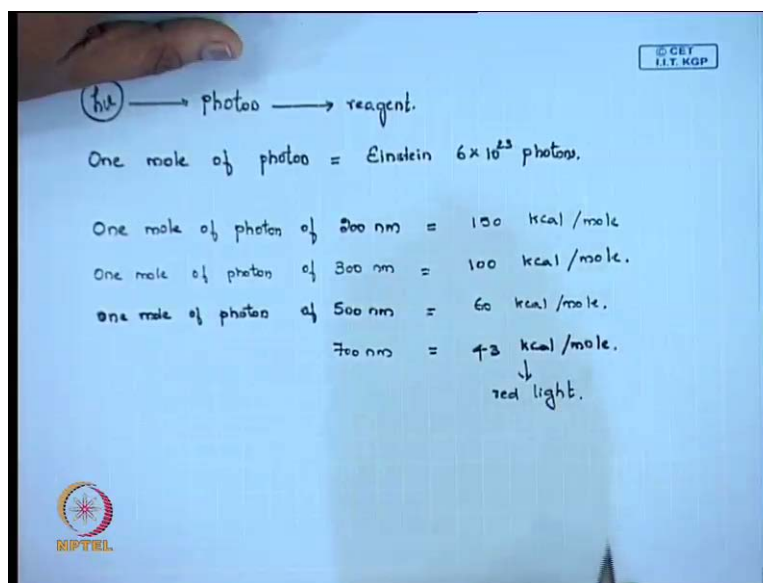 © CET
I.I.T. KGP
hν → photon → reagent.
One mole of photon = Einstein 6 × 10²³ photons.
One mole of photon of 200 nm = 150 kcal/mole
One mole of photon of 300 nm = 100 kcal/mole.
One mole of photon of 500 nm = 60 kcal/mole.
700 nm = 43 kcal/mole.
↓
red light.
NPTEL